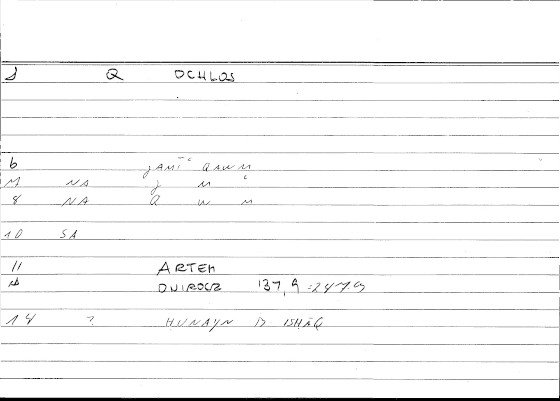 1 Q OCHLOS
6 jamīʿ qawm
7 NA j m ʿ
8 NA q w m
10 SA
11 ARTEM
ONIROCR 137,9 = 247.9
14 ? HUNAYN B ISHĀQ